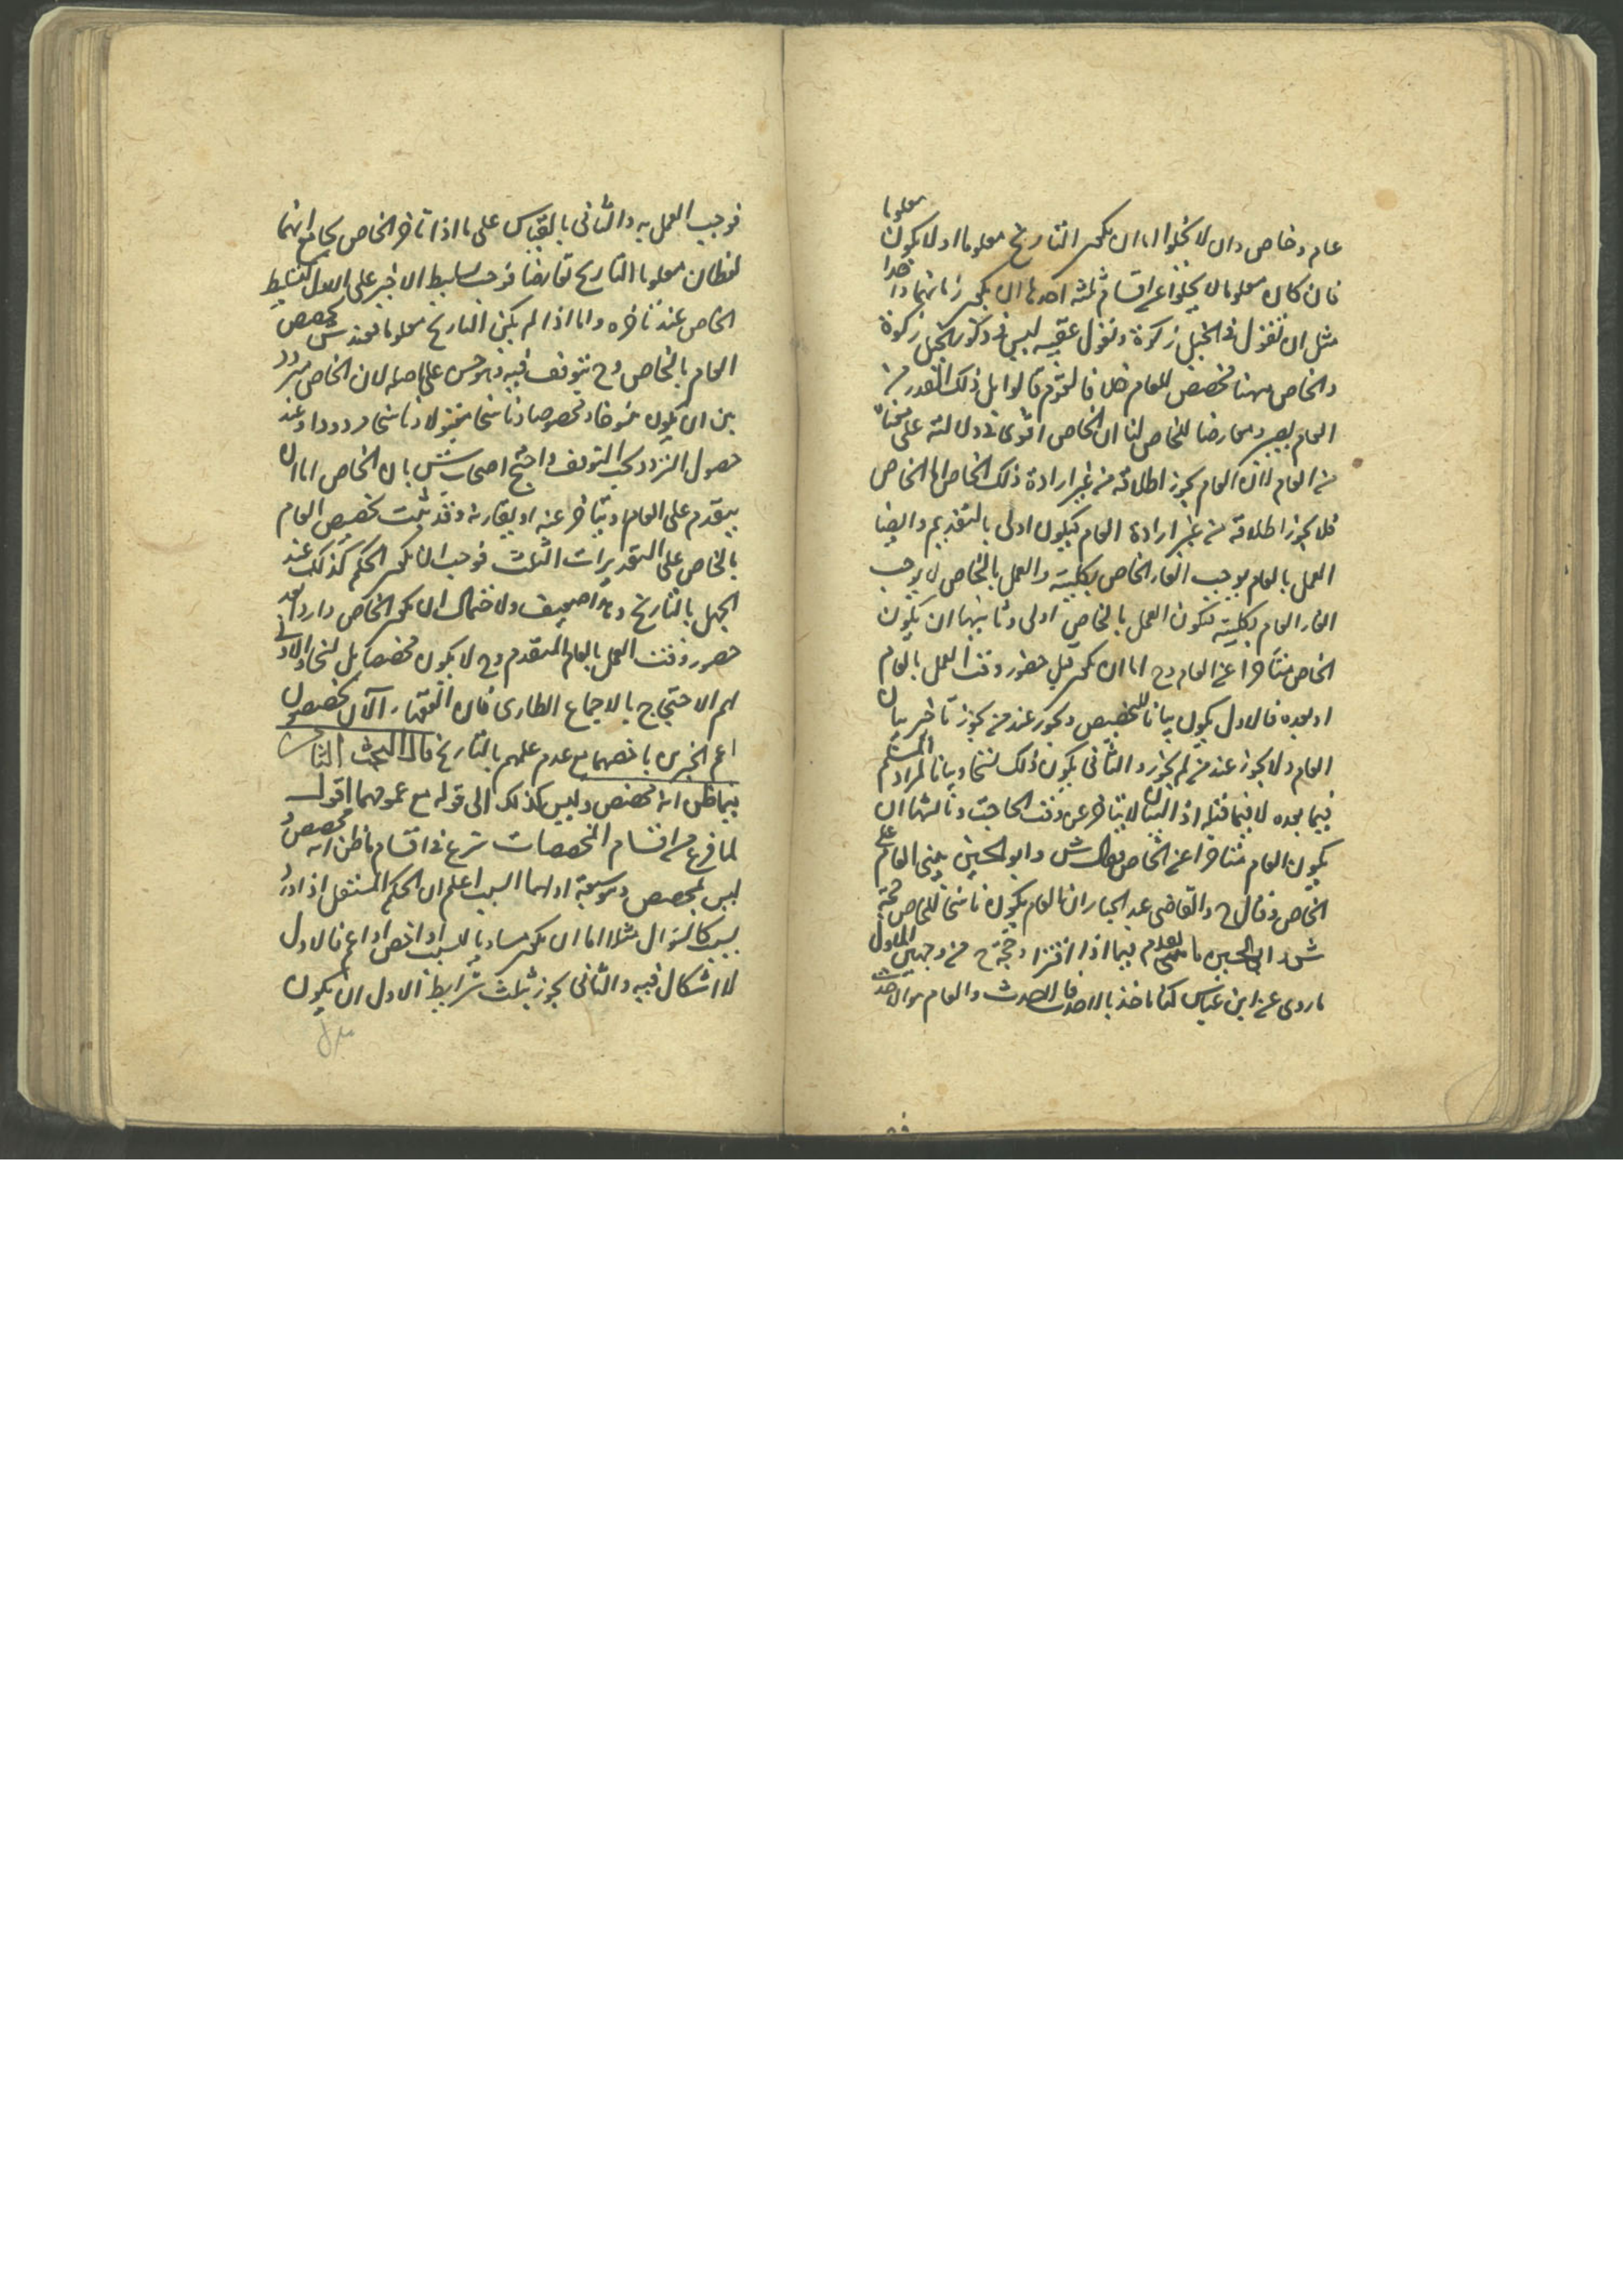 عام وخاص وان لا يخلوا اما ان يكون التاريخ معلوما او لا يكون معلوما
فان كان معلوما لا يخلوا عن اقسام ثلثة احدها ان يكون زمانهما واحدا
مثل ان نقول في الخيل زكوة ونقول عقيبه ليس في ذكور الخيل زكوة
والخاص ههنا مخصص للعام خلافا لقوم قالوا بل ذلك القدر من
العام يصير معارضا للخاص لنا ان الخاص اقوى في دلالته على
من العام لان العام يجوز اطلاقه من غير ارادة ذلك الخاص اما الخاص
فلا يجوز اطلاقه من غير ارادة العام فيكون اولى بالتقديم وايضا
العمل بالعام يوجب الغاء الخاص بكليته والعمل بالخاص لا يوجب
الغاء العام بكليته فيكون العمل بالخاص اولى وثانيها ان يكون
الخاص متأخرا عن العام وح اما ان يكون قبل حضور وقت العمل بالعام
او بعده فالاول يكون بيانا للتخصيص ويجوز عند من يجوز تاخير بيان
العام ولا يجوز عند من لم يجوز والثاني يكون ذلك نسخا وبيانا لمراد المتكلم
فيما بعده لا فيما قبله اذ البيان لا يتاخر عن وقت الحاجة وثالثها ان
يكون العام متاخرا عن الخاص فقال ش وابو الحسين يبنى العام على
الخاص وقال ح والقاضي عبد الجبار ان العام يكون ناسخا للخاص حجة
ش وابي الحسين ما تقدم فيما اذا اقترنا وحجة ح من وجهين الاول
ما روي عن ابن عباس كنا ناخذ بالاحدث فالاحدث والعام هو الاحدث
فوجب العمل به والثاني بالقياس على ما اذا تاخر الخاص بجامع انهما
لفظان معلوما التاريخ تعارضا فوجب تسليط الاخير على الاول كتسليط
الخاص عند تاخره واما اذا لم يكن التاريخ معلوما فعند ش يخصص
العام بالخاص وح يتوقف فيه وهو حسن على اصله لان الخاص متردد
بين ان يكون منسوخا ومخصصا وناسخا مقبولا وناسخا مردودا وعند
حصول التردد يجب التوقف واحتج اصحاب ش بان الخاص اما ان
يتقدم على العام او يتاخر عنه او يقارنه وقد ثبت تخصيص العام
بالخاص على التقديرات الثلث فوجب ان يكون الحكم كذلك عند
الجهل بالتاريخ وهذا ضعيف ولاحتمال ان يكون الخاص واردا بعد
حضور وقت العمل بالعام المتقدم وح لا يكون مخصصا بل نسخا والاولى
لهم الاحتجاج بالاجماع الطارى فان الفقهاء الآن يخصصون
اعم الخبرين باخصهما مع عدم علمهم بالتاريخ قال البحث الثامن
فيما ظن انه مخصص وليس كذلك الى قوله مع عمومهما اقول
لما فرغ من اقسام المخصصات شرع في اقسام ما ظن انه مخصص و
ليس بمخصص وهو سبعة اولها السبب اعلم ان الحكم المستقل اذا ورد
بسبب كالسؤال مثلا اما ان يكون مساويا للسبب او اخص او اعم فالاول
لا اشكال فيه والثاني يجوز بثلث شرايط الاول ان يكون